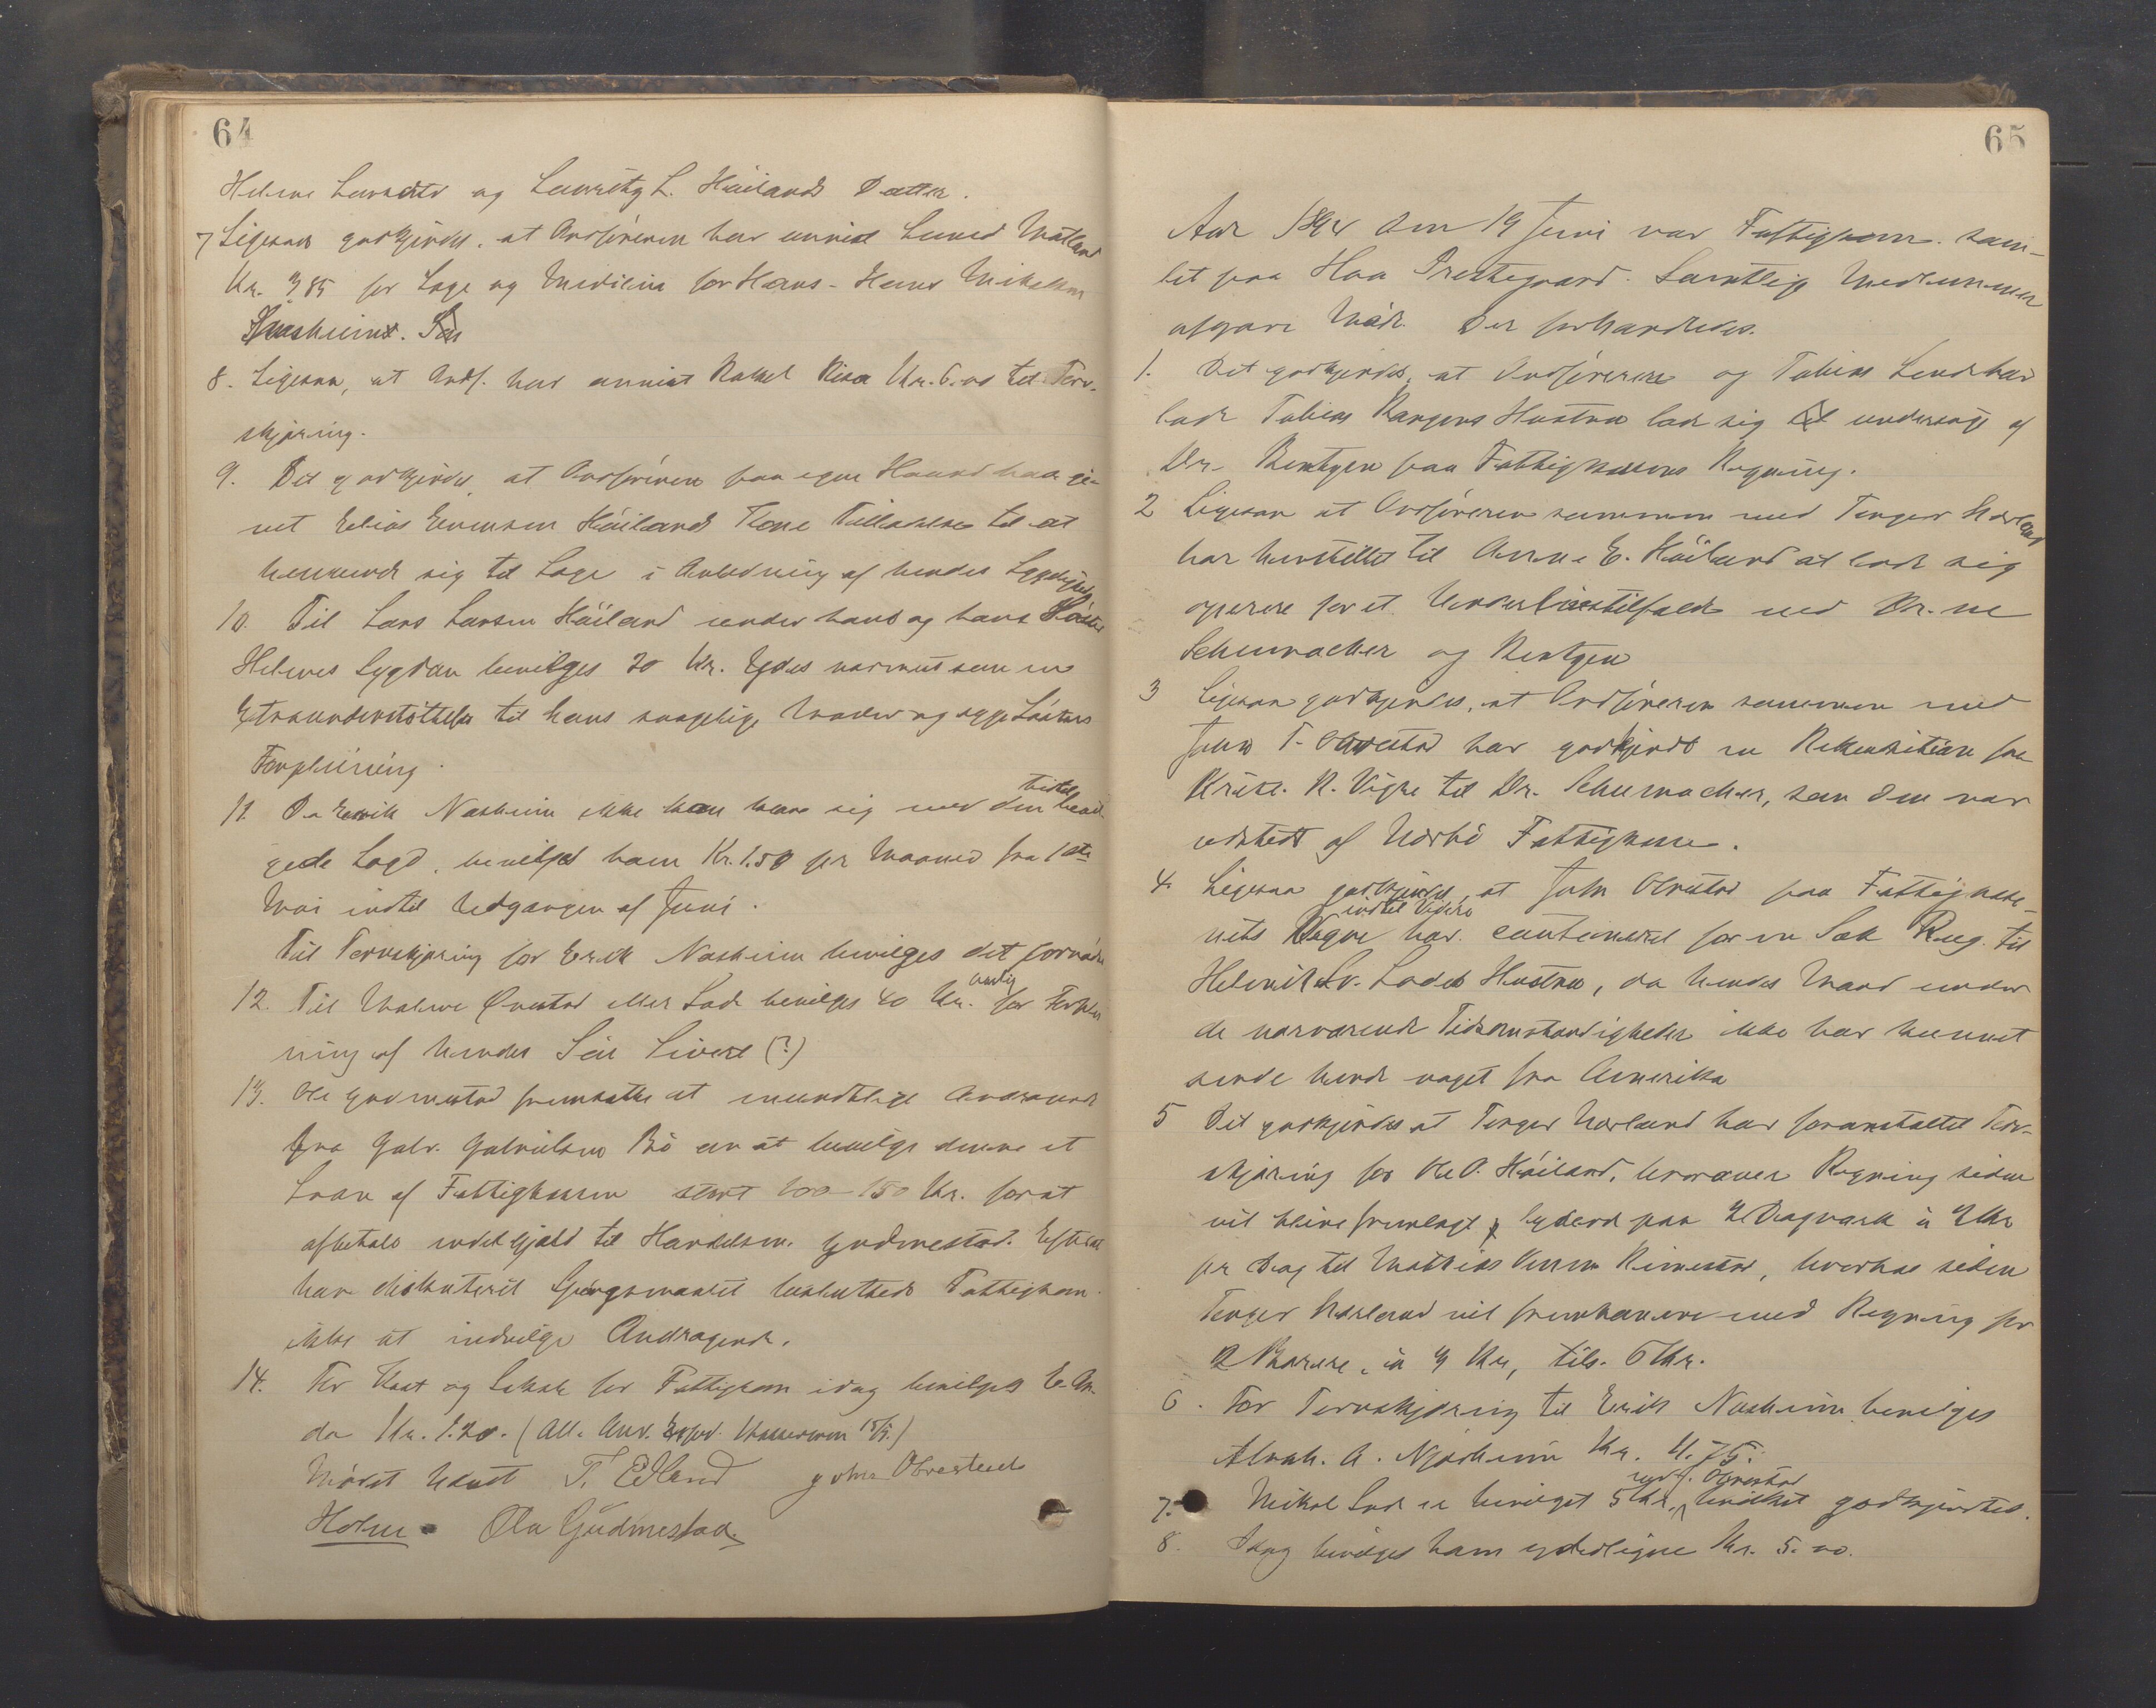 64
Helene Lavrets og Lauritz L. Høilands Datter.
7 Ligesaa godkjendes, at Ordføreren har anvist Lensmd Motland
Kr. 3,85 for Læge og Medicin for Hans Mikelsen
Nærheims. Søn
8. Ligesaa, at Ordf. har anvist Rakel Risa Kr. 6.00 til Torv-
skjæring.
9. Det godkjendes, at Ordføreren paa egen Haand har gi-
vet Elias Evensen Høilands Kone Tilladelse til at
henvende sig til Læge i Anledning af hendes Sygdom
10. Til Lars Larsen Høiland under hans og hans Søster
Helenes Sygdom bevilges 20 Kr. Ydes nærmest som en
Extraunderstøttelse til hans svagelige Moder og ogsaa Søsters
Forpleining.
11. Da Erik Nærheim ikke kan klare sig med den hidtil bevil-
gede Lægd, bevilges ham Kr. 1.50 pr Maaned fra 1ste
Mai indtil Udgangen af Juni.
Til Torvskjæring for Erik Nærheim bevilges det fornødne
12. Til Malene Øvestad eller Lode bevilges 40 Kr. aarlig for Forplei
ning af hendes Søn Sivert (?)
13. Ole Gudmestad fremsatte et mundtlige Andragende
fra Gabr. Gabrielsen Bø om at bevilge denne et
Laan af Fattigkassen stort 100-150 Kr. for at
afbetale endel Gjæld til Handelsm. Gudmestad. Efter at
have diskuteret Spørgsmaalet besluttede Fattigkom.
ikke at indvilge Andragende.
14. For Kost og Lokale for Fattigkom. idag bevilges E. An-
da Kr. 1.20. (All. Anv. Kassereren 15/5.)
Mødet hævet T. Edland John Obrestad
Holm Ola Gudmestad
65
Aar 1894 den 19 Juni var Fattigkom. sam-
let paa Haa Prestegaard. Samtlige Medlemmer
afgave Møde. Der forhandledes.
1. Det godkjendes, at Ordføreren og Tobias Lende har
lade Tobias Vargens Hustru lade sig undersøge af
Dr. Rentgen paa Fattigkassens Regning.
2 Ligesaa at Ordføreren sammen med Torger Nærland
har henstillet til Anne E. Høiland at lade sig
operere for et Underlivstilfælde ved Dr.ne
Schumacher og Rentgen
3 Ligesaa godkjendes, at Ordføreren sammen med
Jens T. Obrestad har godkjendt en Rekvisition fra
Krist. R. Vigre til Dr. Schumacher, som den var
udstedt af Nærbø Fattigkasse.
4. Ligesaa godkjendes, at John Obrestad paa Fattigvæse-
nets Vegne indtil Videre har cautioneret for en Sæk Rug til
Helmik Sv. Lodes Hustru, da hendes Mand under
de nærværende Tidsomstændigheder ikke har kunnet
sende hende noget fra Amerika
5 Det godkjendes at Torger Nærland har foranstaltet Torv-
skjæring for Ole O. Høiland, hvorover Regning siden
vil blive fremlagt lydende paa 2 Dagværk à 2 Kr
pr Dag til Mathias Rimestad, hvorhos siden
Torger Nærland vil fremkomme med Regning for
2 Karrere, à 3 Kr, tils. 6 Kr.
6. For Torvskjæring til Erik Nærheim bevilges
Abrah. A. Njærheim Kr. 4.75.
7. Mikal Lode er bevilget 5 Kr. ved J. Obrestad hvilket godkjendtes.
8. Idag bevilges ham yderligere Kr. 5.00.